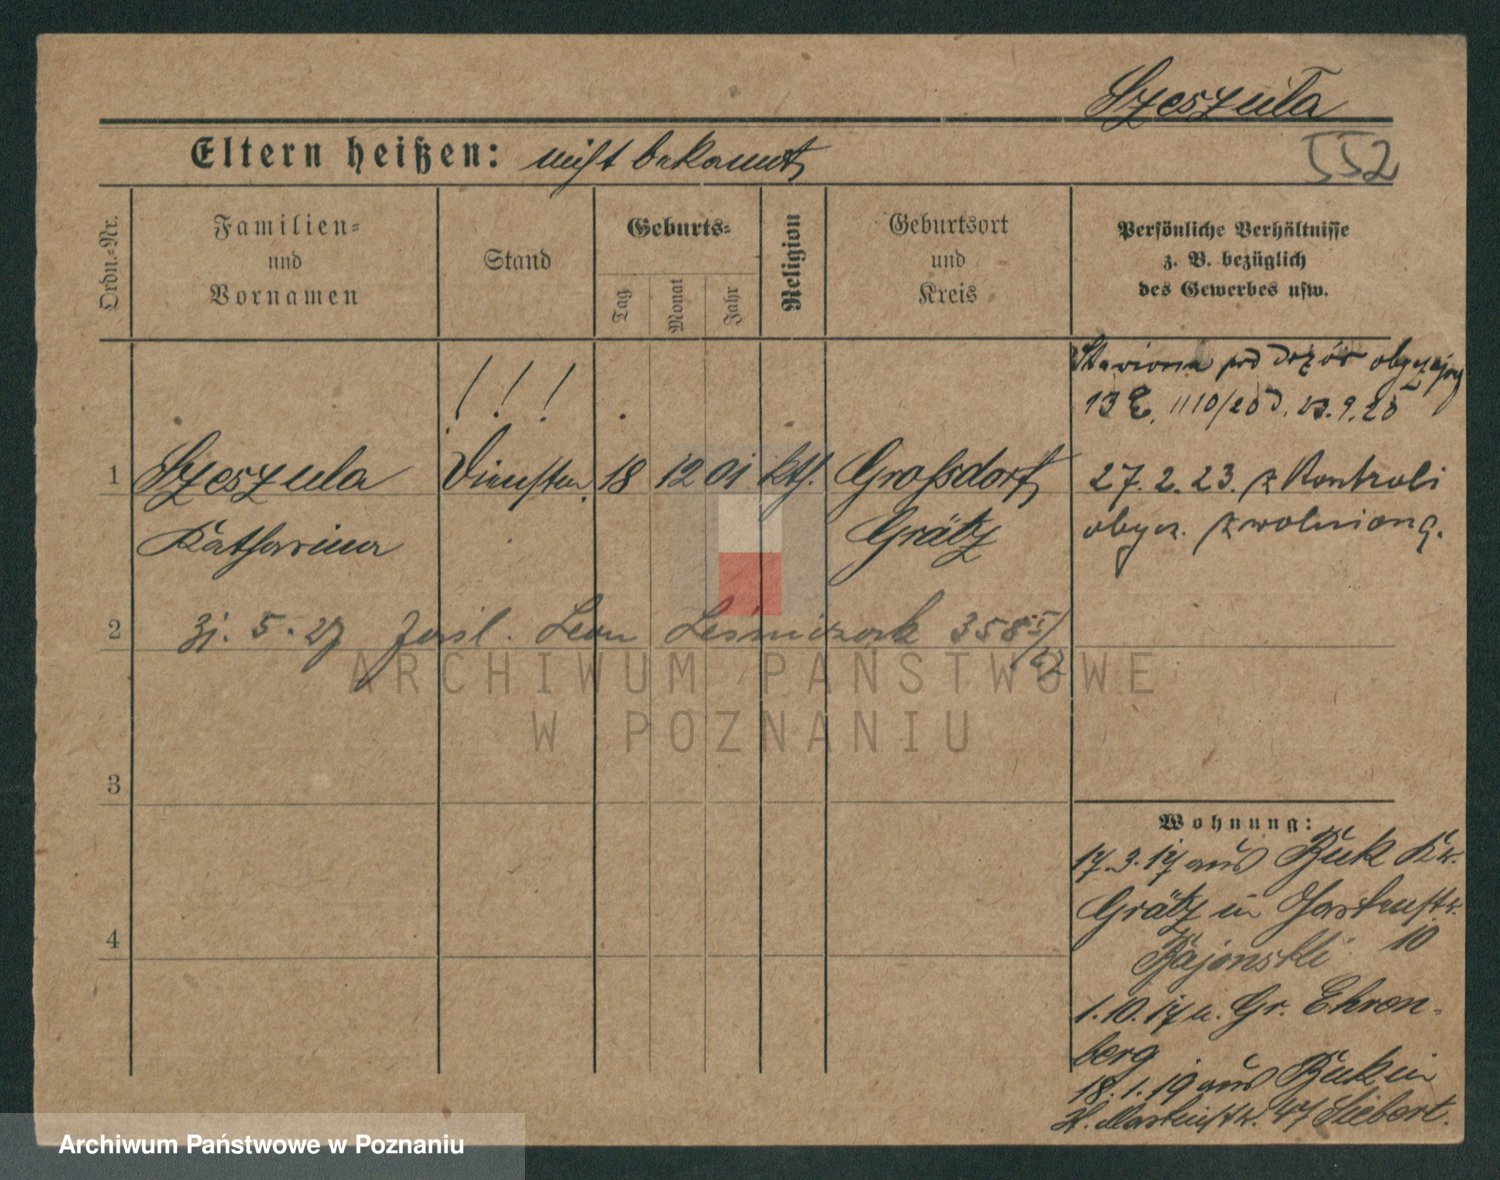 Szeszuła
Eltern heißen: nicht bekannt
552
Ordn.-Nr.
Familien-
und
Vornamen
Stand
Geburts-
Tag
Monat
Jahr
Religion
Geburtsort
und
Kreis
Persönliche Verhältnisse
z. B. bezüglich
des Gewerbes usw.
! ! !
Stawiona pod dozór obyczajowy
13 E. 1110/20 d. 23.9.20
1 Szeszula Dienstm. 18 12 01 kth. Großdorf
Katharina Grätz
27. 2. 23. z Kontroli
obycz. zwolniona.
2 31. 5. 27 Leon Leśniczak 358
3
4
Wohnung:
17.3.17 aus Buk Kr.
Grätz in Gartenstr.
10
Bajonski
1.10.17 n. Gr. Ehren-
berg
18.1.19 aus Buk in
St. Martinstr. 47 Siebert.
ARCHIWUM PAŃSTWOWE
W POZNANIU
Archiwum Państwowe w Poznaniu